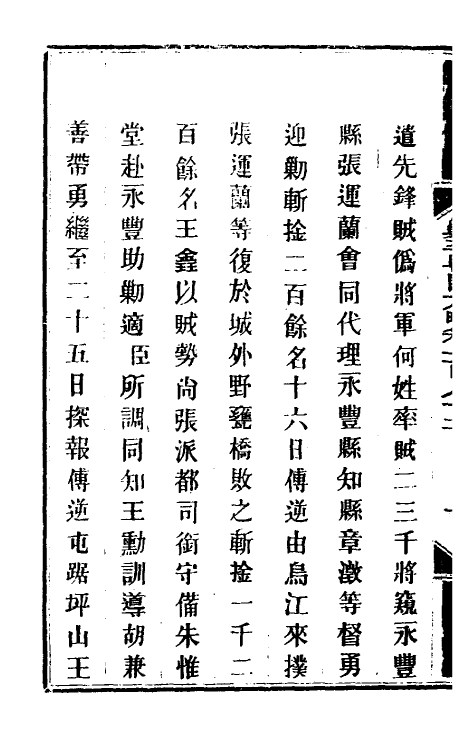 遣先鋒賊僞將軍何姓率賊二三千將窺永豐
縣張運蘭會同代理永豐縣知縣章澂等督勇
迎勦斬捦二百餘名十六日傅逆由烏江來撲
張運蘭等復於城外野甕橋敗之斬捦一千二
百餘名王鑫以賊勢尚張派都司銜守備朱惟
堂赴永豐助勦適臣所調同知王勳訓導胡兼
善帶勇繼至二十五日探報傅逆屯踞坪山王